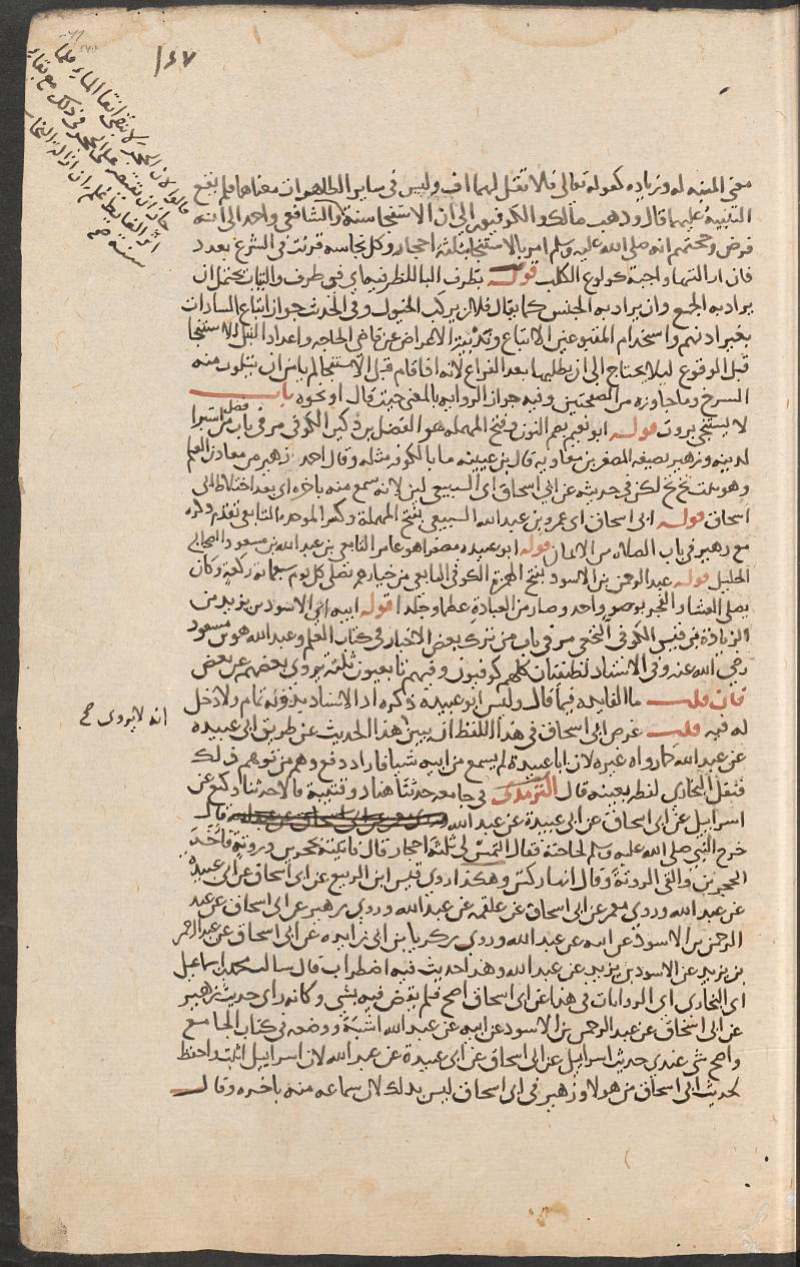 ١٤٧
قالوا لان الحجر لا ينقى انقا الماء فلما
جاز ان يقتصر على الحجر في ذلك مع بقاء
اثر الغايط علم ان ازالة النجا
سنة صح
معنى المنبه له وزياده كقوله تعالى فلا تقل لهما اف وليس في ساير الطهورات معناها فلم يقع
التنبيه عليهما قال وذهب مالك والكوفيون الى أن الاستنجا سنة والشافعي واحد الى انه
فرض وحجتهم انه صلى الله عليه وسلم امر بالاستنجا بثلثة احجار وكل نجاسه قرنت في الشرع بعدد
فان ازالتها واجبة كولوغ الكلب قوله بطرف الباللظرفيه اي في طرف والثياب يحتمل ان
يراد به الجمع وان يراد به الجنس كما يقال فلان يركب الخيول وفي الحديث جواز اتباع السادات
بغير اذنهم واستخدام المتبوعين الاتباع وفيه الاعراض عن قاضي الحاجه واعداد النبل للاستنجا
قبل الوقوع ليلا يحتاج الى ان يطلبها بعد الفراغ لانه اذا قام قبل الاستنجا لم يامن ان يتلوث منه
السرج وما جاوزه من الصفحتين وفيه جواز الروايه بالمعنى حيث قال او نحوه باب
لا يستنجي بروث قوله ابو نعيم بضم النون وفتح المهمله هو الفضل بن دكين الكوفي مر في باب فضل من استبرا
لدينه وزهير بصيغه المصغر بن معاويه قال بن عيينه ما بالكوفه مثله وقال احمد زهير من معادن العلم
وهو ثبت بخ بخ لكن في حديثه عن ابي اسحاق اي السبيعي لين لانه سمع منه باخره اي بعد اختلاط ابي
اسحاق قوله ابي اسحاق اي عمرو بن عبد الله السبيعي بفتح المهملة وكسر الموحده التابعي تقدم ذكره
مع زهير في باب الصلاه من الايمان قوله ابو عبيده مصغرا هو عامر التابعي بن عبد الله بن مسعود الصحابي
الجليل قوله عبد الرحمن بن الاسود بفتح الهمزة الكوفي التابعي من خيارهم تصلي كل يوم سبعمائة ركعة وكان
يصلي العشا والفجر بوضو واحد وصار من العبادة عظما وجلدا قوله ابيه اي الاسود بن يزيد من
الزيادة بن قيس الكوفي النخعي مر في باب من ترك بعض الاخبار في كتاب العلم وعبد الله هو بن مسعود
رضي الله عنه وفي الاسناد لطيفتان كلهم كوفيون وفيهم تابعيون ثلثة يروي بعضهم عن بعض
فان قلت ما الفايده فيما قال وليس ابو عبيده ذكره اذ الاسناد بدونه تمام ولا دخل
له فيه قلت غرض ابي اسحاق في هذا اللفظ ان يبين هذا الحديث عن طريق ابي عبيده
انه لا يروى صح
عن عبد الله كما رواه غيره لان ابا عبيدة لم يسمع من ابيه شيا فاراد دفع وهم من توهم ذلك
فنقل البخاري لفظه بعينه قال الترمذي في جامعه حدثنا هناد وقتيبة قالا حدثنا وكيع عن
اسرايل عن ابي اسحاق عن ابي عبيدة عن عبد الله قال
خرج النبي صلى الله عليه وسلم لحاجته فقال التمس لي ثلثة احجار قال فاتيته بحجرين وروثة فاخذ
الحجرين والقى الروثة وقال انها ركس وهكذا روى قيس ابن الربيع عن ابي اسحاق عن ابي عبيدة
عن عبد الله وروى معمر عن ابي اسحاق عن علقمه عن عبد الله وروى زهير عن ابي اسحاق عن عبد
الرحمن بن الاسود عن ابيه عن عبد الله وروى زكريا بن ابي زايده عن ابي اسحاق عن عبد الرحمن
بن يزيد عن الاسود بن يزيد عن عبد الله وهذا حديث فيه اضطراب قال سالت محمد بن اسماعيل
اي البخاري اي الروايات في هذا عن ابي اسحاق اصح فلم يقض فيه بشي وكانه راى حديث زهير
عن ابي اسحاق عن عبد الرحمن بن الاسود عن ابيه عن عبد الله اشبه ووضعه في كتاب الجامع
واصح شي عندي حديث اسرايل عن ابي اسحاق عن ابي عبيدة عن عبد الله لان اسرايل اثبت واحفظ
لحديث ابي اسحاق من هولا وزهير في ابي اسحاق ليس بذلك لان سماعه منه باخره وقال